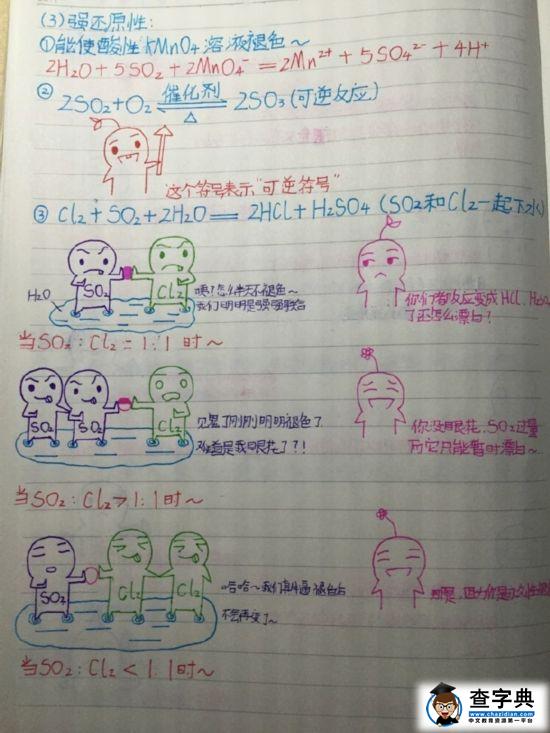 (3)强还原性:
①能使酸性KMnO4溶液褪色~
2H2O+5SO2+2MnO4⁻=2Mn²⁺+5SO4²⁻+4H⁺
② 2SO2+O2 催化剂 ⇌ △ 2SO3(可逆反应)
这个符号表示"可逆符号"
③ Cl2+SO2+2H2O=2HCl+H2SO4(SO2和Cl2一起下水
H2O
SO2
Cl2
咦?怎么半天不褪色~
我们明明是强强联合
你们都反应变成HCl、H2SO4
了还怎么漂白?
当SO2:Cl2=1:1时~
SO2
SO2
Cl2
见鬼了刚刚明明褪色了
难道是我眼花了?!
你没眼花,SO2过量
所它只能暂时漂白~
当SO2:Cl2>1:1时~
SO2
Cl2
Cl2
哈哈~我们
褪色后
不会再变了~
当SO2:Cl2<1:1时~
查字典
www.chazidian.com
中文教育资源第一平台